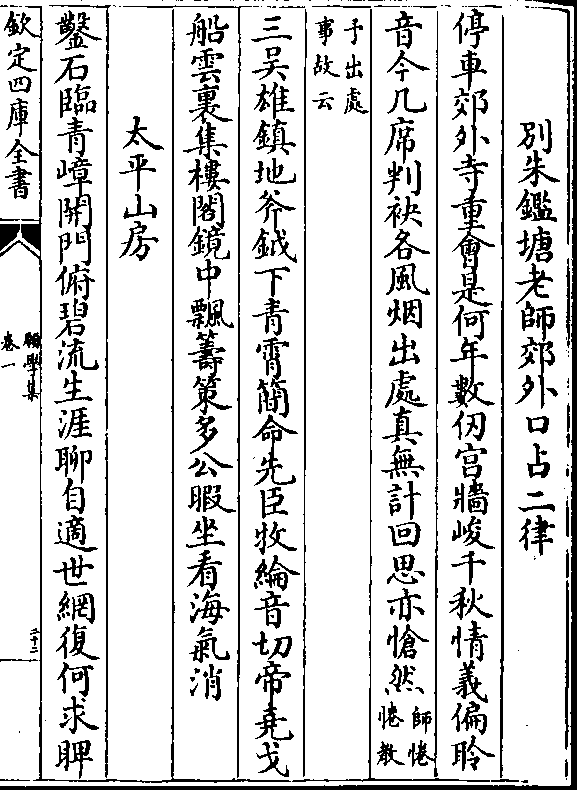 別朱鑑塘老師郊外口占二律
停車郊外寺重會是何年數仭宫牆峻千秋情義偏聆
音今几席判袂各風烟出處真無計回思亦愴然師惓
惓教
予出處
事故云
三吴雄鎮地斧鉞下青霄簡命先臣牧綸音切帝堯戈
船雲裏集樓閣鏡中飄籌策多公暇坐看海氣消
太平山房
鑿石臨青嶂開門俯碧流生涯聊自適世網復何求睥
欽定四庫全書
願學集
卷一
二十二